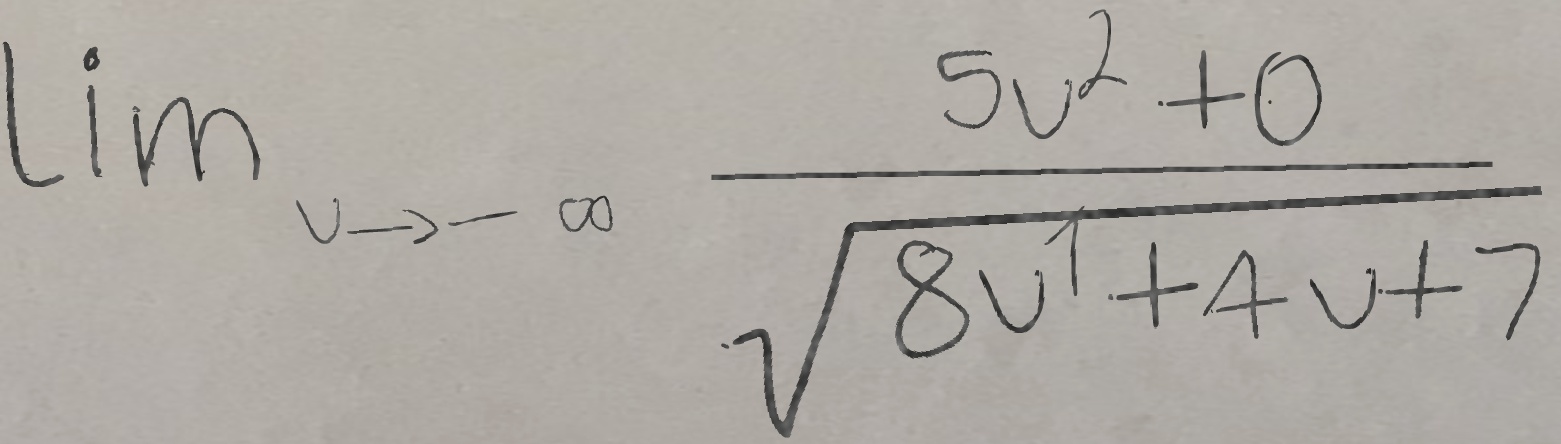 \lim_{v \to -\infty} \frac{5v^2+0}{\sqrt{8v^1+4v+7}}